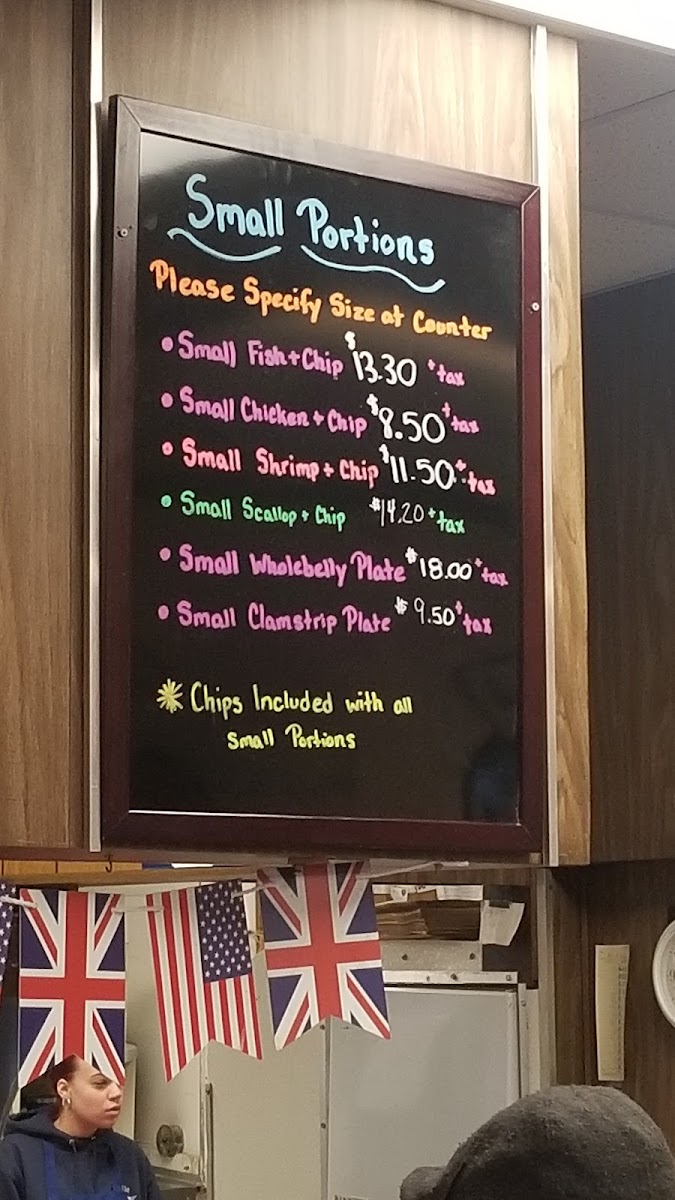 Small Portions
Please Specify Size at Counter
• Small Fish + Chip $13.30 + tax
• Small Chicken + Chip $8.50 + tax
• Small Shrimp + Chip $11.50 + tax
• Small Scallop + Chip $14.20 + tax
• Small Wholebelly Plate $18.00 + tax
• Small Clamstrip Plate $9.50 + tax
* Chips Included with all
Small Portions